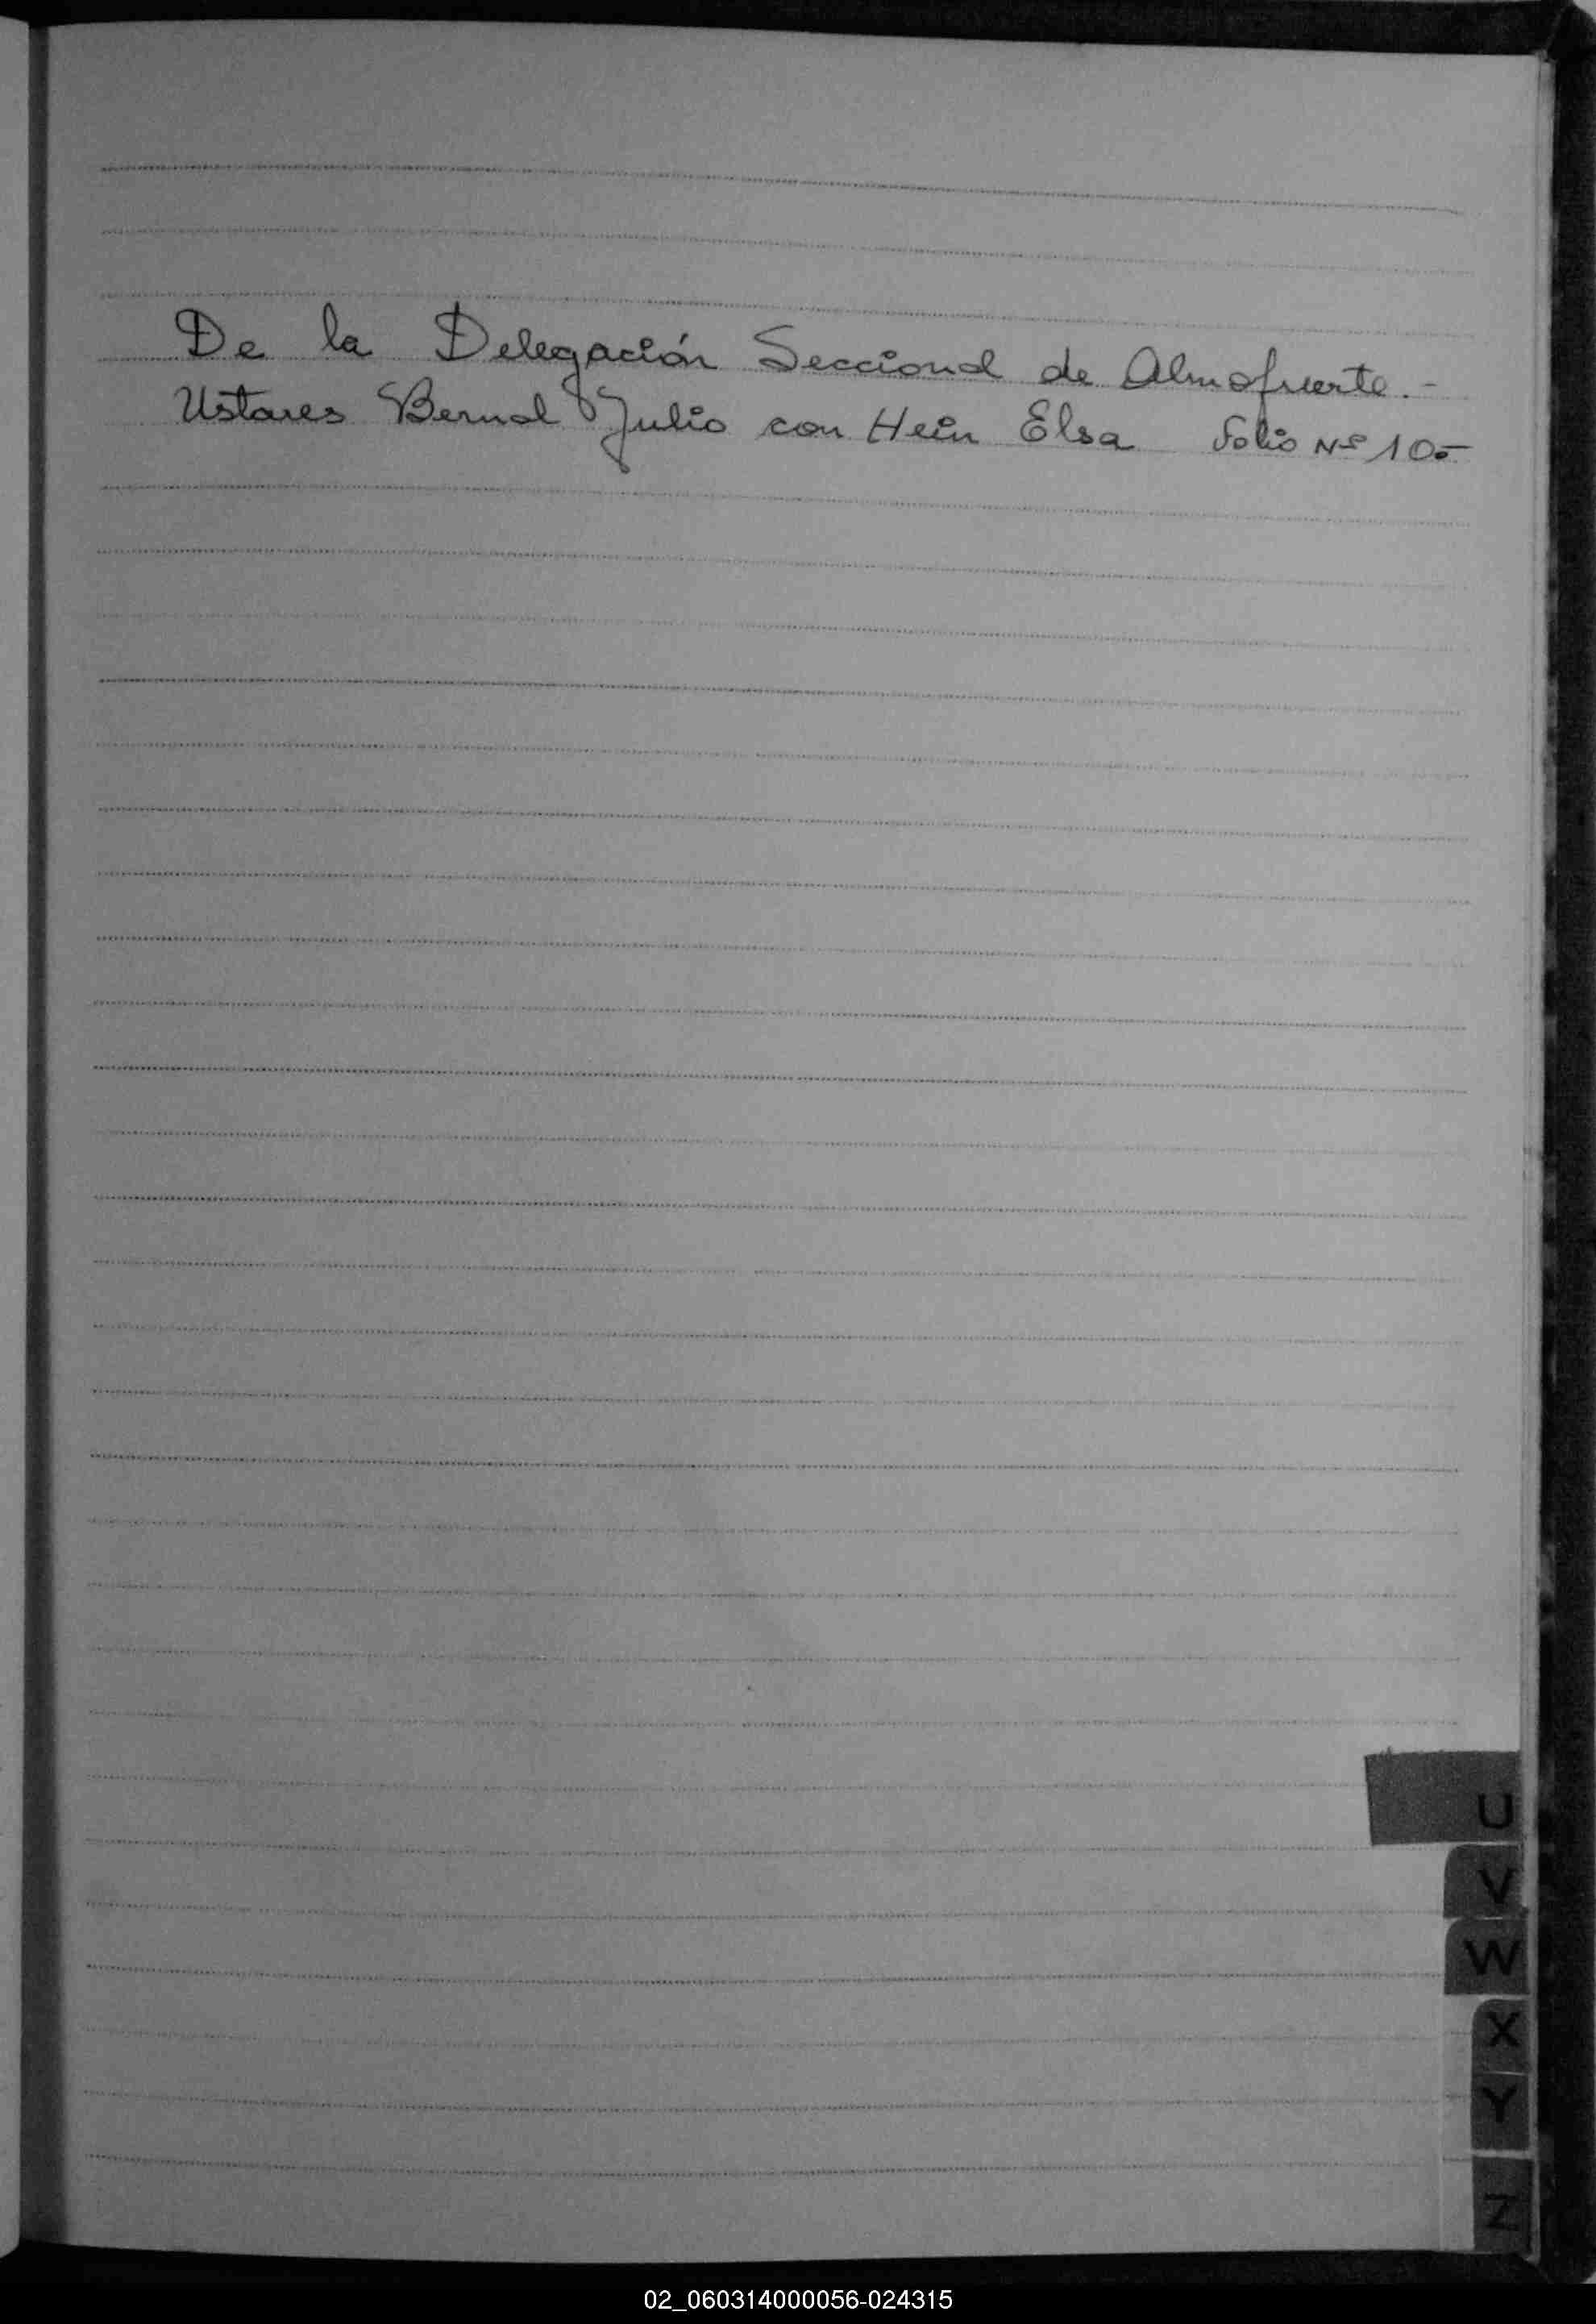 De la Delegación Seccional de Almafuerte.-
Ustares Bernal Julio con Hein Elsa Folio Nº 10.-
U
V
W
X
Y
Z
02_060314000056-024315